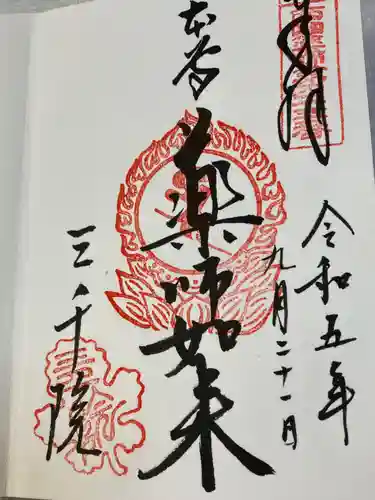 奉拝
令和五年
九月二十一日
薬師如来
三千院